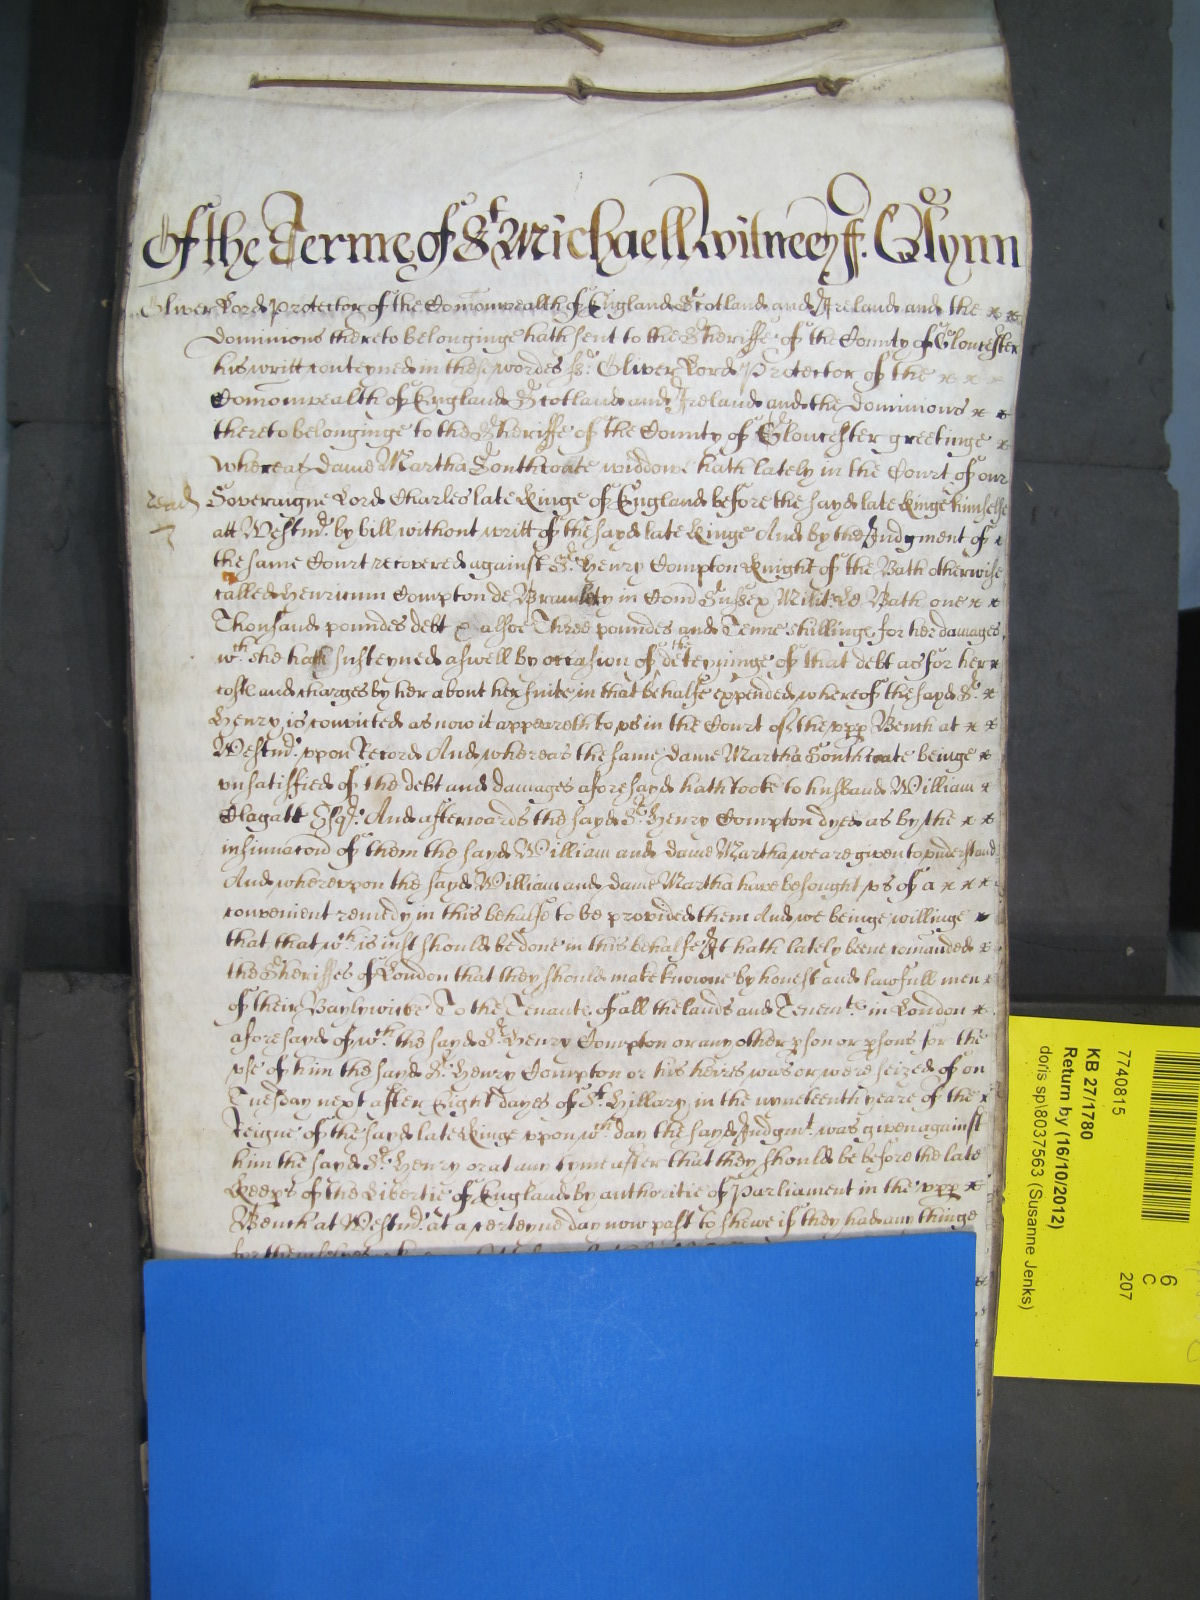 Of the Terme of St Michaell witnes J. Glynn
Oliver Lord Protector of the Comonwealth of England Scotland and Ireland and the
dominions thereto belonginge hath sent to the Sheriffe of the County of Gloucester
his writt conteyned in these wordes ss. Oliver Lord Protector of the
Comonwealth of England Scotland and Ireland and the dominions
thereto belonginge to the Sheriffe of the County of Gloucester greetinge
Whereas Dame Martha Southcoate widdowe hath lately in the Court of our
Soveraigne Lord Charles late Kinge of England before the sayd late Kinge himselfe
att Westmr. by bill without writt of the sayd late Kinge And by the Judgment of
the same Court recovered against Sr. Henry Compton Knight of the Bath otherwise
called Henricum Compton de Brambley in Com Sussex Milit de Bath one
Thousand poundes debt & alsoe Three poundes and Tenne shillings for her damages
wch she hath susteyned aswell by occasion of the deteyninge of that debt as for her
costs and charges by her about her suite in that behalfe expended whereof the sayd Sr.
Henry is convicted as now it appeareth to us in the Court of the upp Bench at
Westmr. uppon Record And whereas the same dame Martha Southcoate beinge
unsatisfied of the debt and damages aforesayd hath tooke to husband William
Clagatt Esqr. And afterwards the sayd Sr. Henry Compton dyed as by the
insinuacon of them the sayd William and dame Martha we are given to understand
And whereuppon the sayd William and dame Martha have besought us of a
convenient remedy in this behalfe to be provided them And we beinge willinge
that that wch is iust should be done in this behalfe It hath lately beene comanded
the Sheriffes of London that they should make knowne by honest and lawfull men
of their Baylywicke To the Tenants of all the lands and Tenemts in London
aforesayd of wch the sayd Sr. Henry Compton or any other pson or psons for the
use of him the sayd Sr. Henry Compton or his heires was or were seized of on
Tuesday next after Eight dayes of St. Hillary in the nyneteenth yeare of the
Reigne of the sayd late Kinge uppon wch day the sayd Judgmt was given against
him the sayd Sr. Henry or at any tyme after that they should be before the late
Keeps of the Libertie of England by authoritie of Parliament in the upp
Bench at Westmr. at a certeyne day now past to shewe if they had any thinge
for themselves
7740815
KB 27/1780
Return by (16/10/2012)
doris sp\8037563 (Susanne Jenks)
6
C
207